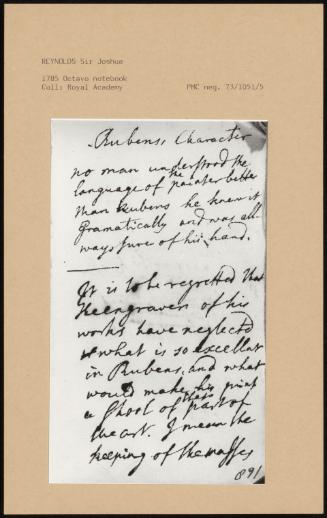 REYNOLDS Sir Joshua
1785 Octavo notebook
Coll: Royal Academy
PMC neg. 73/1051/5
Rubens, Character
no man understood the
language of the painter better
than Rubens he knew it
Gramatically and was all
ways sure of his hand.
It is to be regretted that
the engravers of his
works have neglected
what is so excellent
in Rubens, and what
would make his print
a School of that part of
the art. I mean the
keeping of the masses
891